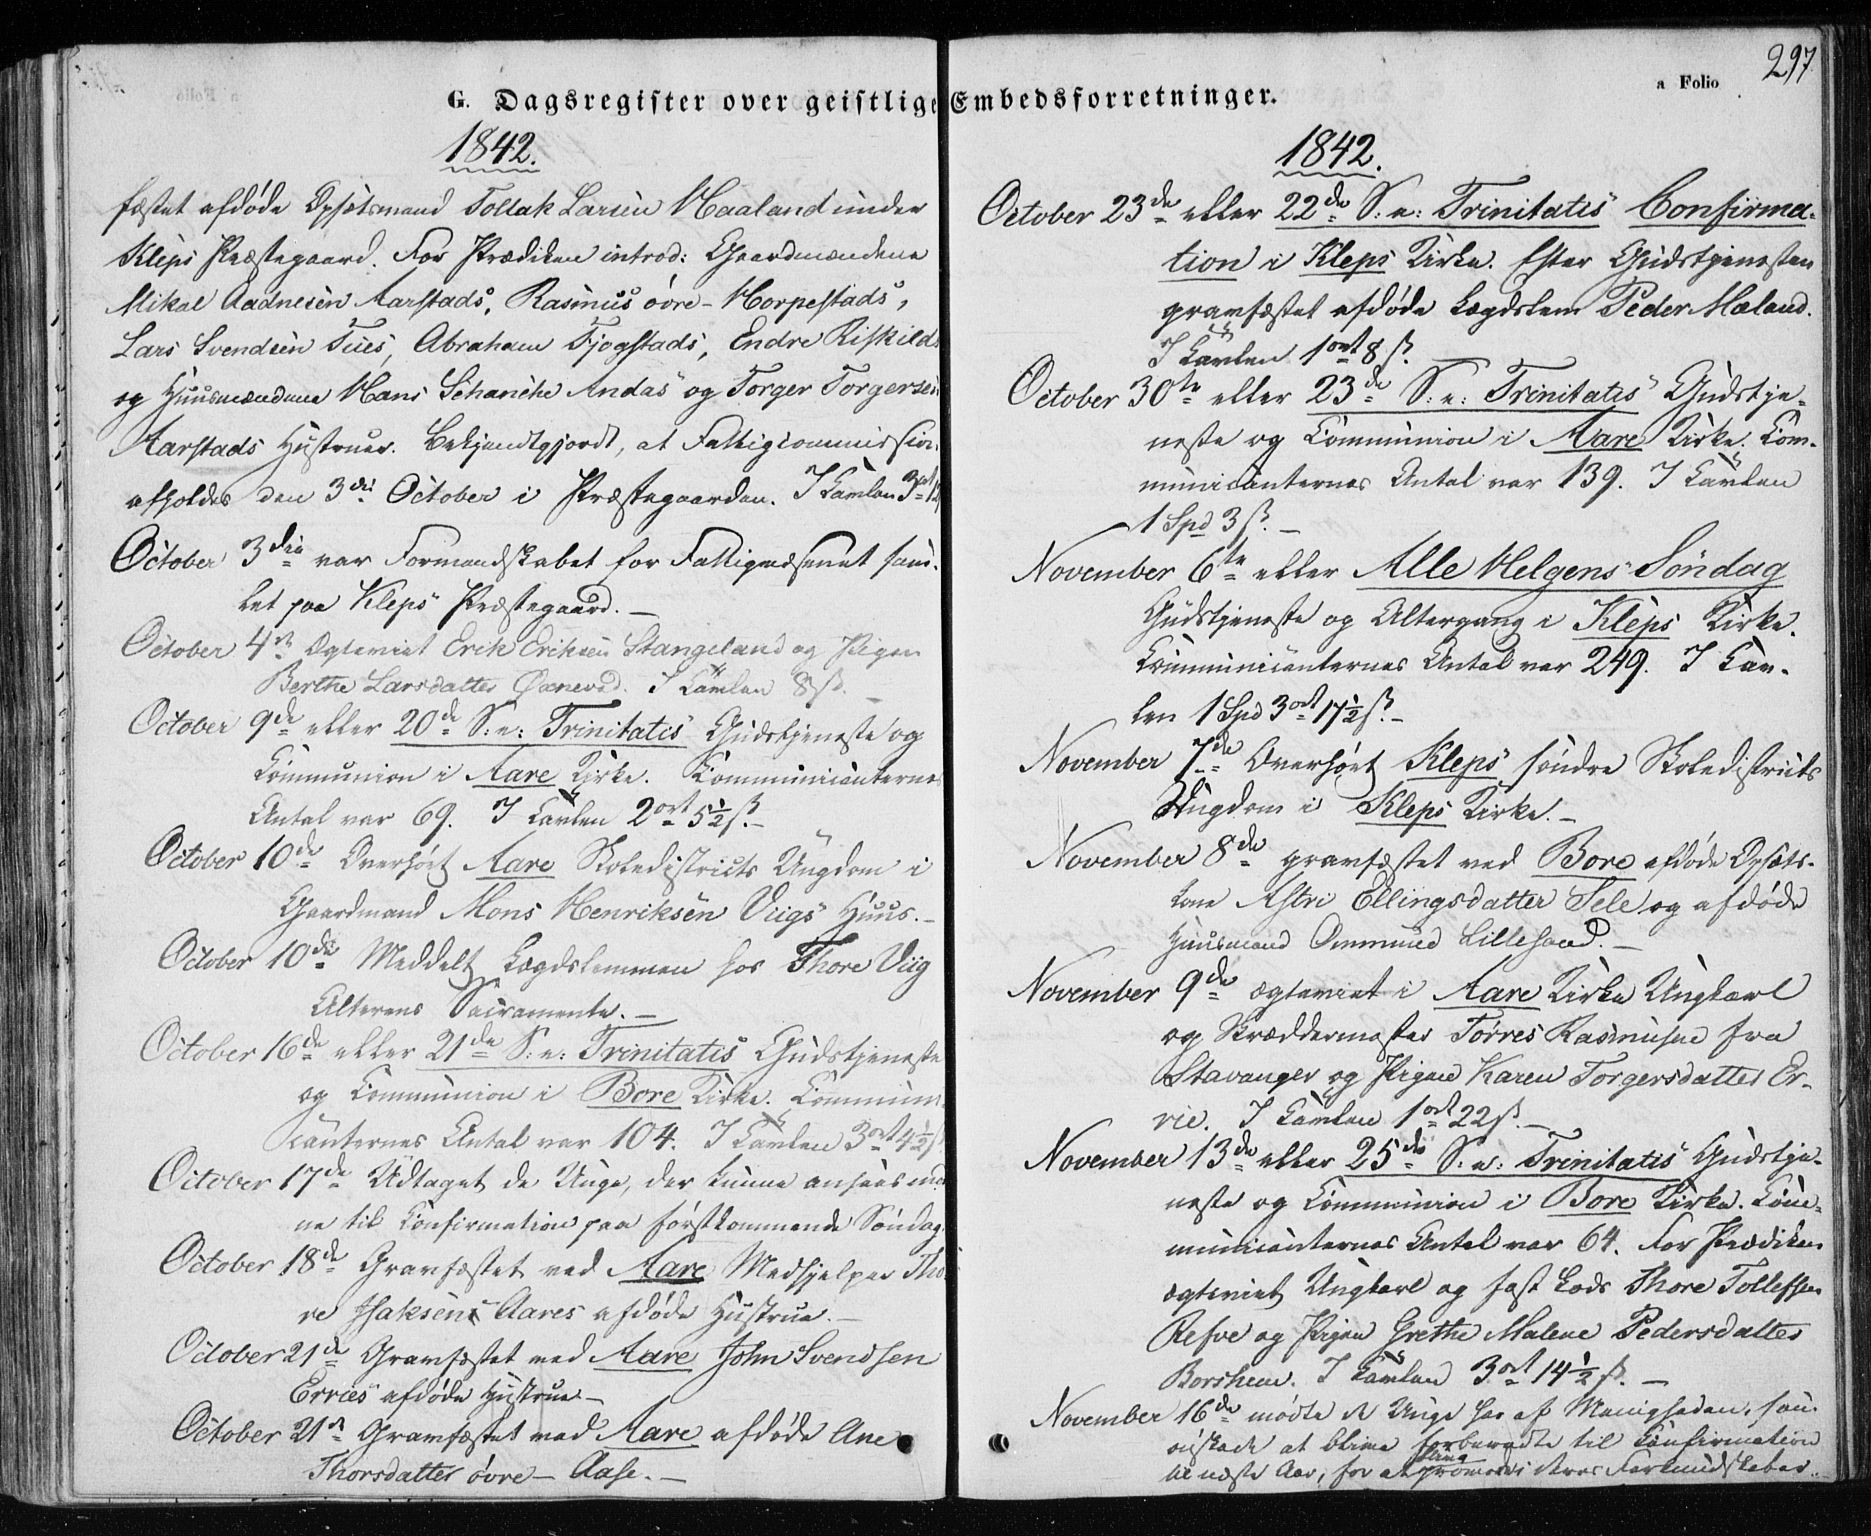 G. Dagsregister over geistlige Embedsforretninger.
a Folio
297
1842.
fæstet afdøde Opsætsmand Tollak Larsen Haaland under
Kleps Præstegaard. For Prædiken introd: Gaardmændene
Mikal Aadnesen Aarstads, Rasmus øvre-Horpestads,
Lars Svendsen Tues, Abraham Fjogstads, Endre Riskilds
og Huusmændene Hans Schanche Andas og Torger Torgersen
Aarstads Hustruer. Bekjendtgjordt, at Fattigcommission
afholdes den 3die October i Præstegaarden. I Tavlen 3ort
October 3die var Formandskabet for Fattigvæsenet sam-
let paa Kleps Præstegaard. —
October 4de Ægteviet Erik Eriksen Stangeland og Pigen
Berthe Larsdatter Øxnevad. I Tavlen 8ß. —
October 9de eller 20de S: e: Trinitatis Gudstjeneste og
Communion i Aare Kirke. Communicanternes
Antal var 69. I Tavlen 2ort 5½ß. —
October 10de Overhørt Aare Skoledistricts Ungdom i
Gaardmand Mons Henriksen Viigs Huus. —
October 10de Meddelt Lægdslemmen hos Thore Viig
Alterens Sacramente. —
October 16de eller 21de S: e: Trinitatis Gudstjeneste
og Communion i Bore Kirke. Communi-
canternes Antal var 104. I Tavlen 3ort 4½ß
October 17de Udtaget de Unge, der kunne ansees mod-
ne til Confirmation paa førstkommende Søndag.
October 18de Gravfæstet ved Aare Medhjelper Tho-
re Isaksen Aares afdøde Hustrue. —
October 21de Gravfæstet ved Aare John Svendsen
Erries afdøde Hustrue —
October 21de Gravfæstet ved Aare afdøde Ane
Thorsdatter øvre-Aase. —
1842.
October 23de eller 22de S: e: Trinitatis Confirma-
tion i Kleps Kirke. Efter Gudstjenesten
gravfæstet afdøde Lægdslem Peder Mæland.
I Tavlen 1ort 8ß.
October 30te eller 23de S: e: Trinitatis Gudstje-
neste og Communion i Aare Kirke. Com-
municanternes Antal var 139. I Tavlen
1 Spd 3ß. —
November 6te eller Alle Helgens Søndag
Gudstjeneste og Altergang i Kleps Kirke.
Communicanternes Antal var 249. I Tav-
len 1 Spd 3ort 17½ß. —
November 7de Overhørt Kleps søndre Skoledistricts
Ungdom i Kleps Kirke. —
November 8de gravfæstet ved Bore afdøde Opsæts-
kone Astri Ellingsdatter Sele og afdøde
Huusmand Ommund Lillesand. —
November 9de ægteviet i Aare Kirke Ungkarl
og Skræddermester Tørres Rasmusen fra
Stavanger og Pigen Karen Torgersdatter Er-
rie. I Tavlen 1ort 22ß. —
November 13de eller 25de S: e: Trinitatis Gudstje-
neste og Communion i Bore Kirke. Com-
municanternes Antal var 64. For Prædiken
ægteviet Ungkarl og fast Lods Thore Tollefsen
Refve og Pigen Grethe Malene Pedersdatter
Borshem. I Tavlen 3ort 14½ß. —
November 16de mødte de Unge her af Menigheden, som
ønskede at blive forberedte til Confirmation
til næste Aar, for at blive prøvede i deres Forkundskaber.